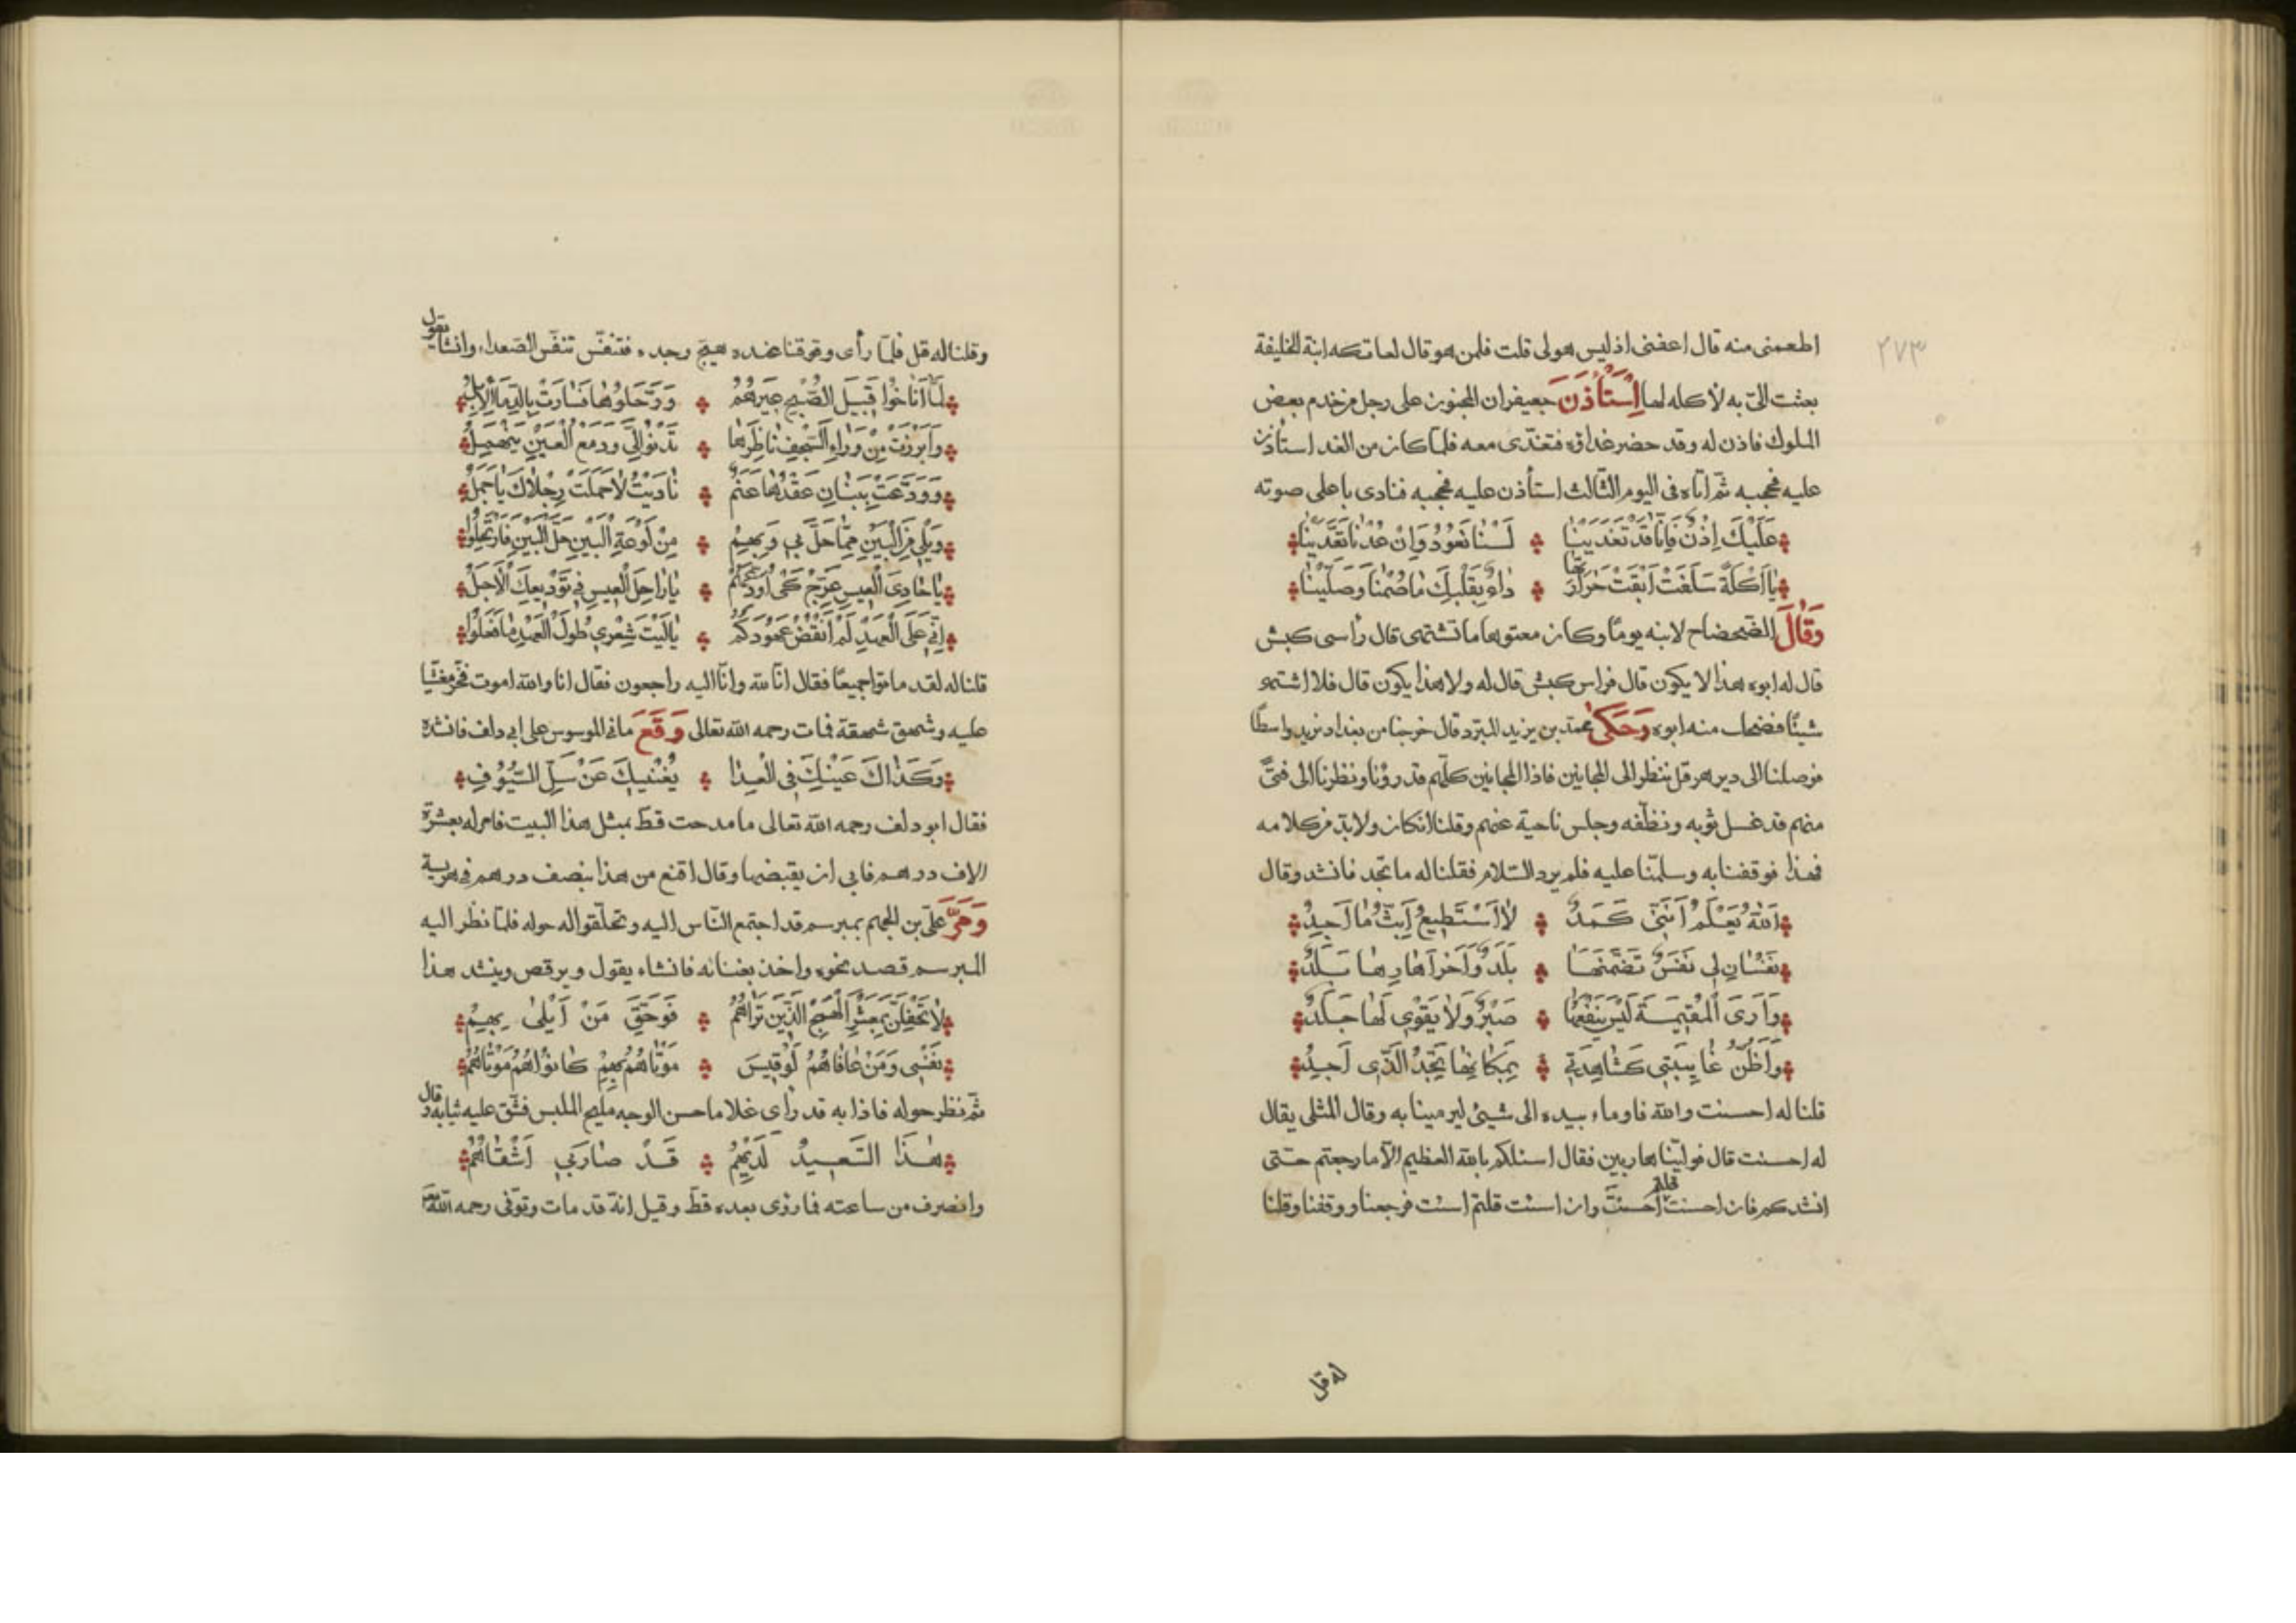 ٢٧٣
اطعمنى منه قال اعفنى اذ ليس هو لى قلت فلمن هو قال لعاتكه ابنة الخليفة
بعثت الىّ به لأكله لها اِسْتَأْذَنَ جعيفران المجنون على رجل من خدم بعض
الملوك فاذن له وقد حضر غداؤه فتغدى معه فلمّا كان من الغد استأذن
عليه فحجبه ثمّ اتاه فى اليوم الثّالث استأذن عليه فحجبه فنادى باعلى صوته
عَلَيْكَ اِذْنٌ فَاِنَّا قَدْ تَغَدَّيْنَا لَسْنَا نَعُودُ وَاِنْ عُدْنَا تَغَدَّيْنَا
يَا اَكْلَةً سَلَفَتْ اَبْقَتْ حَرَارَتَهَا دَاءً بِقَلْبِكَ مَا صُمْنَا وَصَلَّيْنَا
وَقَالَ الضحضاح لابنه يومًا وكان معتوها ما تشتهى قال رأسى كبش
قال له ابوه هذا لا يكون قال فراس كبش قال له ولا هذا يكون قال فلا اشتهى
شيئًا فضحك منه ابوه وَحَكَى محمّد بن يزيد المبرّد قال خرجنا من بغداد نريد واسطًا
فوصلنا الى دير هرقل ننظر الى المجانين فاذا المجانين كلّهم قد رؤنا ونظرنا الى فتًى
منهم قد غسل ثوبه ونظّفه وجلس ناحية عنهم وقلنا ان كان ولابدّ فمن كلامه
فهذا فوقفنا به وسلّمنا عليه فلم يرد السّلام فقلنا له ما تجد فانشد وقال
اَللّٰهُ يَعْلَمُ اَنَّنِى كَمَدٌ لَا اَسْتَطِيعُ اَبُثُّ مَا اَجِدُ
نَفْسَانِ لِى نَفْسٌ تَضَمَّنَهَا بَلَدٌ وَاُخْرَى حَازَهَا بَلَدٌ
وَاَرَى الْمُقِيمَةَ لَيْسَ يَنْفَعُهَا صَبْرٌ وَلَا يَقْوَى لَهَا جَلَدٌ
وَاَظُنُّ غَايِبَتِى كَشَاهِدَتِى بِمَكَانِهَا تَجِدُ الَّذِى اَجِدُ
قلنا له احسنت والله فاوماء بيده الى شيئ ليرمينا به وقال المثلى يقال
له احسنت قال فولّينا هاربين فقال اسئلكم بالله العظيم الّا ما رجعتم حتّى
انشدكم فان احسنت قلتم احسنتَ وان اسئت قلتم اسئت فرجعنا ووقفنا وقلنا
له قل
وقلنا له قل فلمّا رأى وقوفنا عنده هيّج وجده فتنفّس تنفّس الصّعداء وانشأ يقول
لَمَّا اَنَاخُوا قُبَيْلَ الصُّبْحِ عِيرَهُمُ وَرَحَّلُوهَا فَسَارَتْ بِالدِّمَا الْاِبِلُ
وَاَبْرَزَتْ مِنْ وَرَاءِ السَّجْفِ نَاظِرَهَا تَدْنُو اِلَىَّ وَدَمْعُ الْعَيْنِ يَنْهَمِلُ
وَوَدَّعَتْ بِبَنَانٍ عَقْدُهَا عَنَمٌ نَادَيْتُ لَا حَمَلَتْ رِجْلَاكَ يَا جَمَلُ
وَيْلِى مِنَ الْبَيْنِ مِمَّا حَلَّ بِى وَبِهِمُ مِنْ لَوْعَةِ الْبَيْنِ حَلَّ الْبَيْنُ فَارْتَحَلُوا
يَا حَادِىَ الْعِيسِ عَرِّجْ كَىْ اُوَدِّعَكُمْ يَا رَاحِلَ الْعِيسِ فِى تَوْدِيعِكَ الْاَجَلُ
اِنِّى عَلَى الْعَهْدِ لَمْ اَنْقُضْ عُهُودَكُمُ يَا لَيْتَ شِعْرِى لِطُولِ الْعَهْدِ مَا فَعَلُوا
قلنا له لقد ماتوا جميعًا فقال انّا لله وانّا اليه راجعون فقال انا والله اموت فخرّ مغشيًا
عليه وشهق شهقة فمات رحمه الله تعالى وَقَفَ مانى الموسوس على ابى دلف فانشده
وَكَذَاكَ عَيْنِكَ فِى الْعِدَا يُغْنِيكَ عَنْ سَلِّ السُّيُوفِ
فقال ابو دلف رحمه الله تعالى ما مدحت قطّ بمثل هذا البيت فامر له بعشرة
الاف درهم فابى ان يقبضها وقال اقنع من هذا بنصف درهم فى هريسة
وَمَرَّ علىّ بن الجهم بمبرسم قد اجتمع النّاس اليه وتحلّقوا له حوله فلمّا نظر اليه
المبرسم قصد نحوه واخذ بعنانه فانشاء يقول ويرقص وينشد هذا
لَا تَحْفِلَنَّ بِمَعْشَرِ الْهَمَجِ الَّذِينَ تَرَاهُمُ فَوَحَقِّ مَنْ اَبْلَى بِهِمْ
نَفْسِى وَمَنْ عَافَاهُمُ لَوْ قِيسَ مَوْتَاهُمْ بِهِمْ كَانُوا هُمُ مَوْتَاهُمُ
ثمّ نظر حوله فاذا به قد رأى غلاما حسن الوجه مليح الملبس فشّق عليه ثيابه وقال
هٰذَا السَّعِيدُ لَدَيْهِمُ قَدْ صَارَ بِى اَشْقَاهُمُ
وانصرف من ساعته فما رؤى بعده قطّ وقيل انّه قد مات وتوفى رحمه الله تعالى